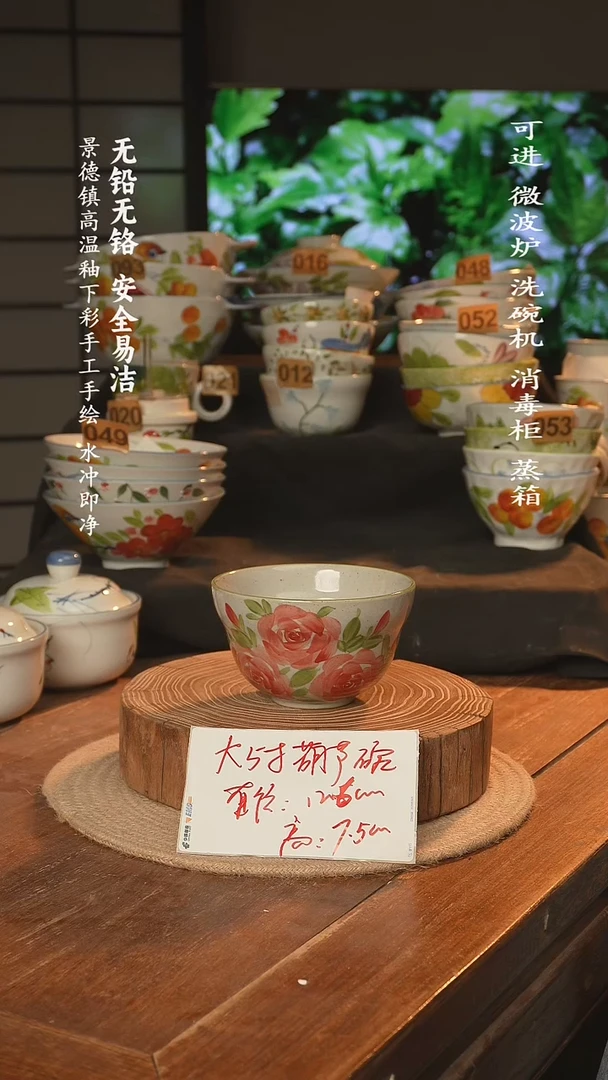 可进 微波炉 洗碗机 消毒柜 蒸箱
无铅无铬 安全易洁
景德镇高温釉下彩手工手绘 水冲即净
016
048
052
012
020
049
053
大5寸葫芦碗
直径：12.6cm
高：7.5cm